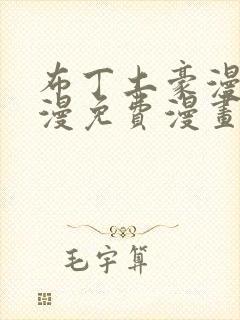 布丁土豪漫
漫免費漫畫
毛宇算